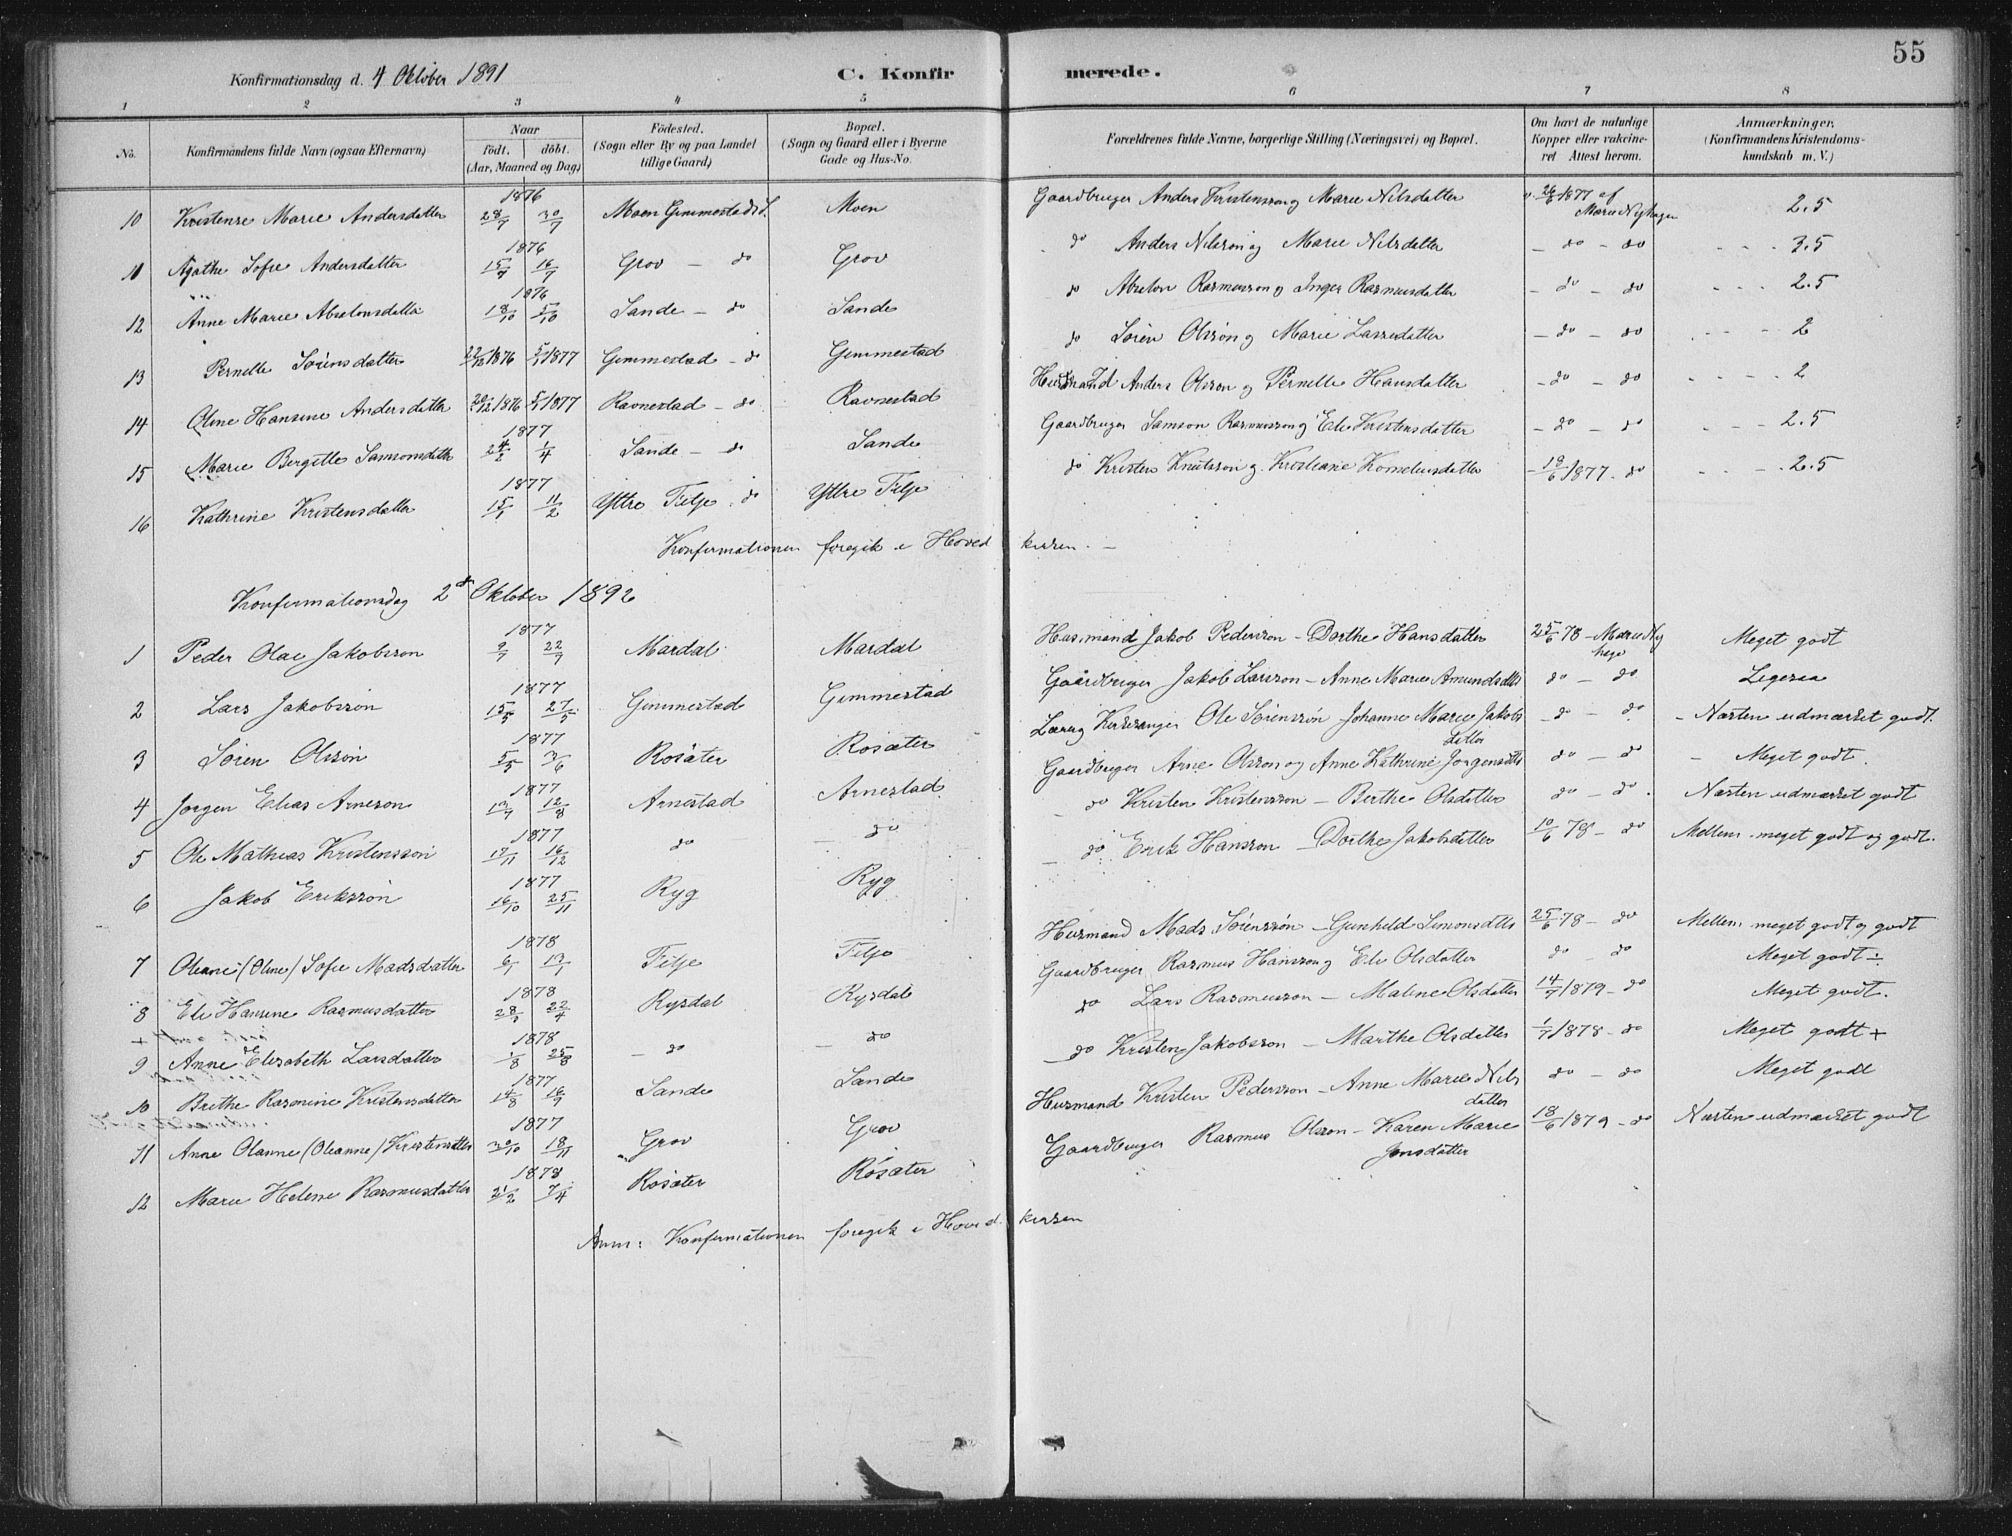 55
Konfirmationsdag d. 4 Oktober 1891 C. Konfirmerede.
1 2 3 4 5 6 7 8
No. Konfirmandens fulde Navn (ogsaa Efternavn) Naar født. døbt. (Aar, Maaned og Dag) Fødested. (Sogn eller By og paa Landet tillige Gaard) Bopæl. (Sogn og Gaard eller i Byerne Gade og Hus-No. Forældrenes fulde Navne, borgerlige Stilling (Næringsvei) og Bopæl. Om havt de naturlige Kopper eller vakcineret Attest herom. Anmærkninger. (Konfirmandens Kristendomskundskab m. V.)
10 Kristense Marie Andersdatter 1876 28/7 30/7 Moen Gimmestads S. Moen Gaardbruger Anders Kristensson og Marie Nilsdatter 26/6 1877 af Marie Nyhagen 2.5
11 Agathe Sofie Andersdatter 1876 15/7 16/7 Grov - do Grov do Anders Nilsson og Marie Nilsdatter - do - do 3.5
12 Anne Marie Absalonsdatter 1876 18/10 Sande - do Sande do Absalon Rasmusson og Inger Rasmusdatter - do - do 2.5
13 Pernelle Sørensdatter 22/12 1876 5/1 1877 Gimmestad - do Gimmestad do Søren Olsson og Marie Lassedatter - do - do 2
14 Oline Hansine Andersdatter 20/12 1876 1877 Ravnestad - do Ravnestad Husmand Anders Olsson og Pernelle Hansdatter - do - do 2
15 Marie Bergitte Samsonsdatter 1877 24/2 1/4 Sande - do Sande Gaardbruger Samson Rasmusson og Eli Kristensdatter - do - do 2.5
16 Kathrine Kristensdatter 1877 15/1 11/2 Yttre Filje do Yttre Filje do Kristen Knutsson og Kristiane Korneliusdatter - 19/6 1877 - do 2.5
Konfirmationen foregik i Hovedkirken. -
Konfirmationsdag 2d Oktober 1892
1 Peder Olai Jakobsson 1877 9/7 22/7 Mardal Mardal Husmand Jakob Pedersson - Dorthe Hansdatter 25/6 78 - Marie Nyhage Meget godt
2 Lars Jakobsson 1877 15/5 27/5 Gimmestad Gimmestad Gaardbruger Jakob Larsson - Anne Marie Amundsdatter do - do Ligesaa
3 Søren Olsson 1877 5/5 3/6 Rosæter Rosæter Lærer og Kirkesanger Ole Sørensson Johanne Marie Jakobsdatter - do - do - Næsten udmærket godt.
4 Jørgen Elias Arneson 1877 12/8 Arnestad Arnestad Gaardbruger Arne Olsson og Anne Kathrine Jørgensdatter do - do - Meget godt.
5 Ole Mathias Kristensson 1877 17/11 16/12 do - do do Kristen Kristensson - Berthe Olsdatter do - do. Næsten udmærket godt
6 Jakob Eriksson 1877 16/10 25/11 Ryg Ryg - do Erik Hansson - Dorthe Jakobsdatter 10/6 78 - do Mellem meget godt og godt.
7 Oleane (Oline) Sofie Madsdatter 1878 6/1 13/1 Filje Filje Husmand Mads Sørensson - Gunhild Simonsdatter 25/6 78 - do Mellem meget godt og godt
8 Eli Hansine Rasmusdatter 1878 22/4 Rysdal Rysdal Gaardbruger Rasmus Hansson og Eli Olsdatter do - do Meget godt ÷
9 Anne Elisabeth Larsdatter 1878 1/8 25/8 - do - do do Lars Rasmusson - Maline Olsdatter 14/7 1879 - do Meget godt.
10 Brithe Rasmine Kristensdatter 1877 14/8 16/9 Sande Sande - do Kristen Jakobsson - Marthe Olsdatter 1/7 1878 - do Meget godt +
11 Anne Olanne (Oleanne) Kristensdatter 1877 30/10 18/11 Grov Grov Husmand Kristen Pedersson - Anne Marie Nilsdatter do - do Meget godt
12 Marie Helene Rasmusdatter 1878 21/2 7/4 Røsæter Røsæter Gaardbruger Rasmus Olsson - Karen Marie Jonsdatter 18/6 1879 - do Næsten udmærket godt
Anm: Konfirmationen foregik i Hovedkirken